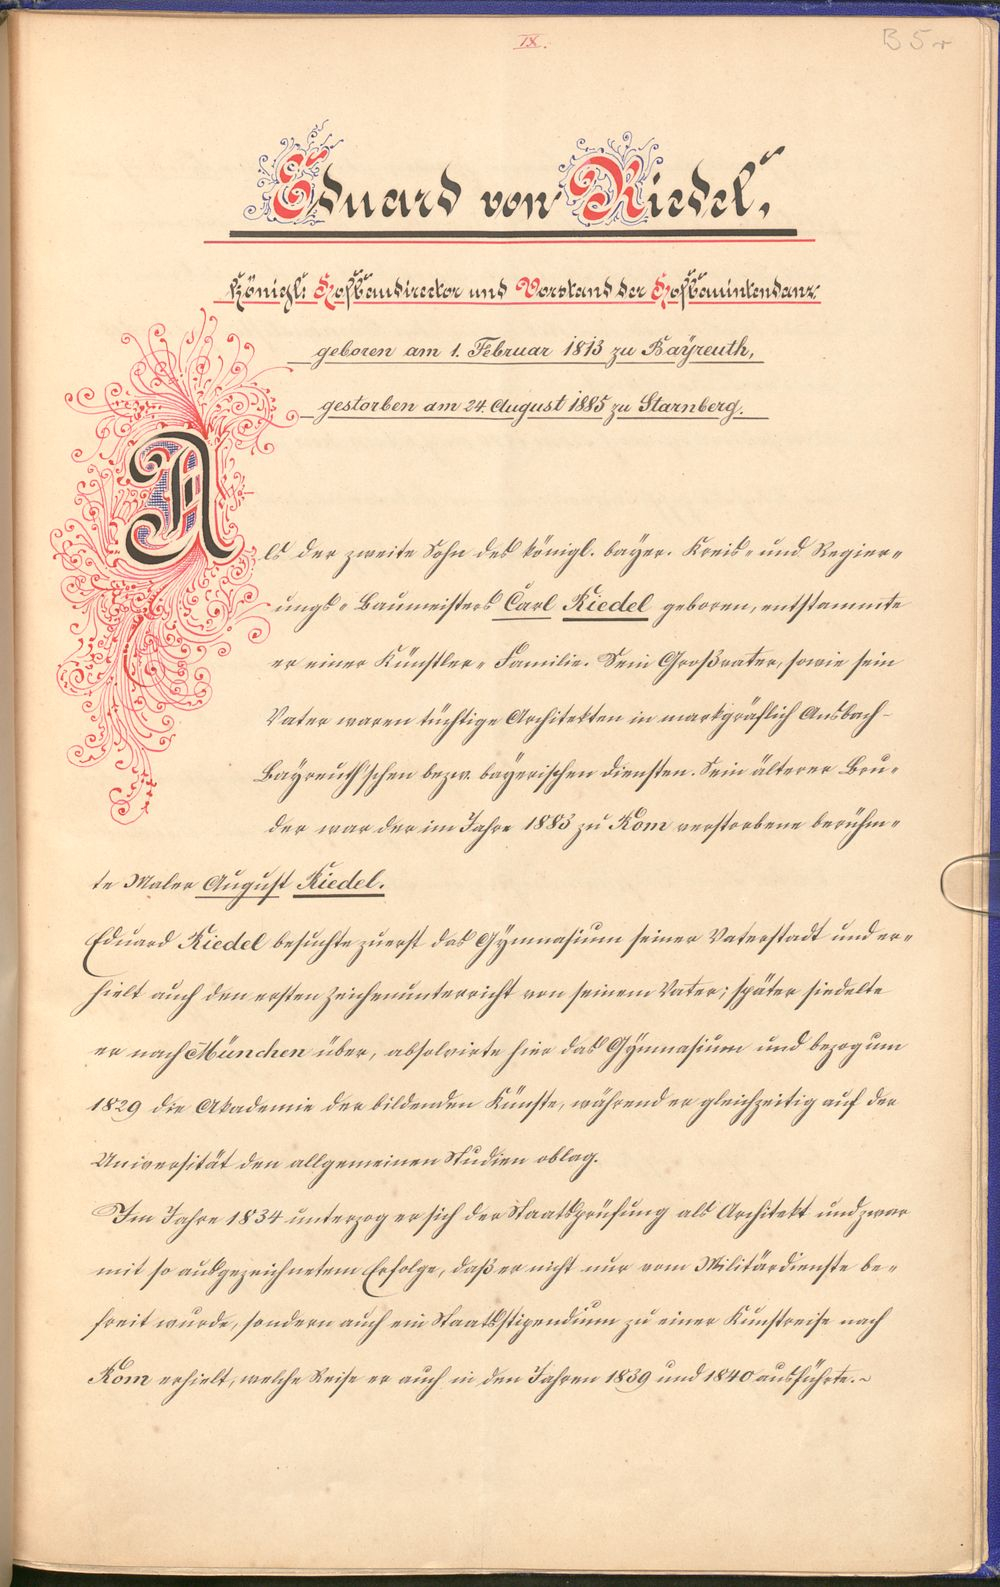 IX.
B 5r
Eduard von Riedel,
Königl: Hofbaudirector und Vorstand der Hofbauintendanz
geboren am 1. Februar 1813 zu Bayreuth,
gestorben am 24. August 1885 zu Starnberg.
Als der zweite Sohn des königl. bayer. Kreis- und Regier-
ungs-Baumeisters Carl Riedel geboren, entstammte
er einer Künstler-Familie. Sein Großvater, sowie sein
Vater waren tüchtige Architekten in markgräflich Ansbach-
Bayreuth'schen bezw. bayerischen Diensten. Sein älterer Bru-
der war der im Jahre 1883 zu Rom verstorbene berühm-
te Maler August Riedel.
Eduard Riedel besuchte zuerst das Gymnasium seiner Vaterstadt und er-
hielt auch den ersten Zeichenunterricht von seinem Vater; später siedelte
er nach München über, absolvirte hier das Gymnasium und bezog um
1829 die Akademie der bildenden Künste, während er gleichzeitig auf der
Universität den allgemeinen Studien oblag.
Im Jahre 1834 unterzog er sich der Staatsprüfung als Architekt und zwar
mit so ausgezeichnetem Erfolge, daß er nicht nur vom Militärdienste be-
freit wurde, sondern auch ein Staatsstipendium zu einer Kunstreise nach
Rom erhielt, welche Reise er auch in den Jahren 1839 und 1840 ausführte.~